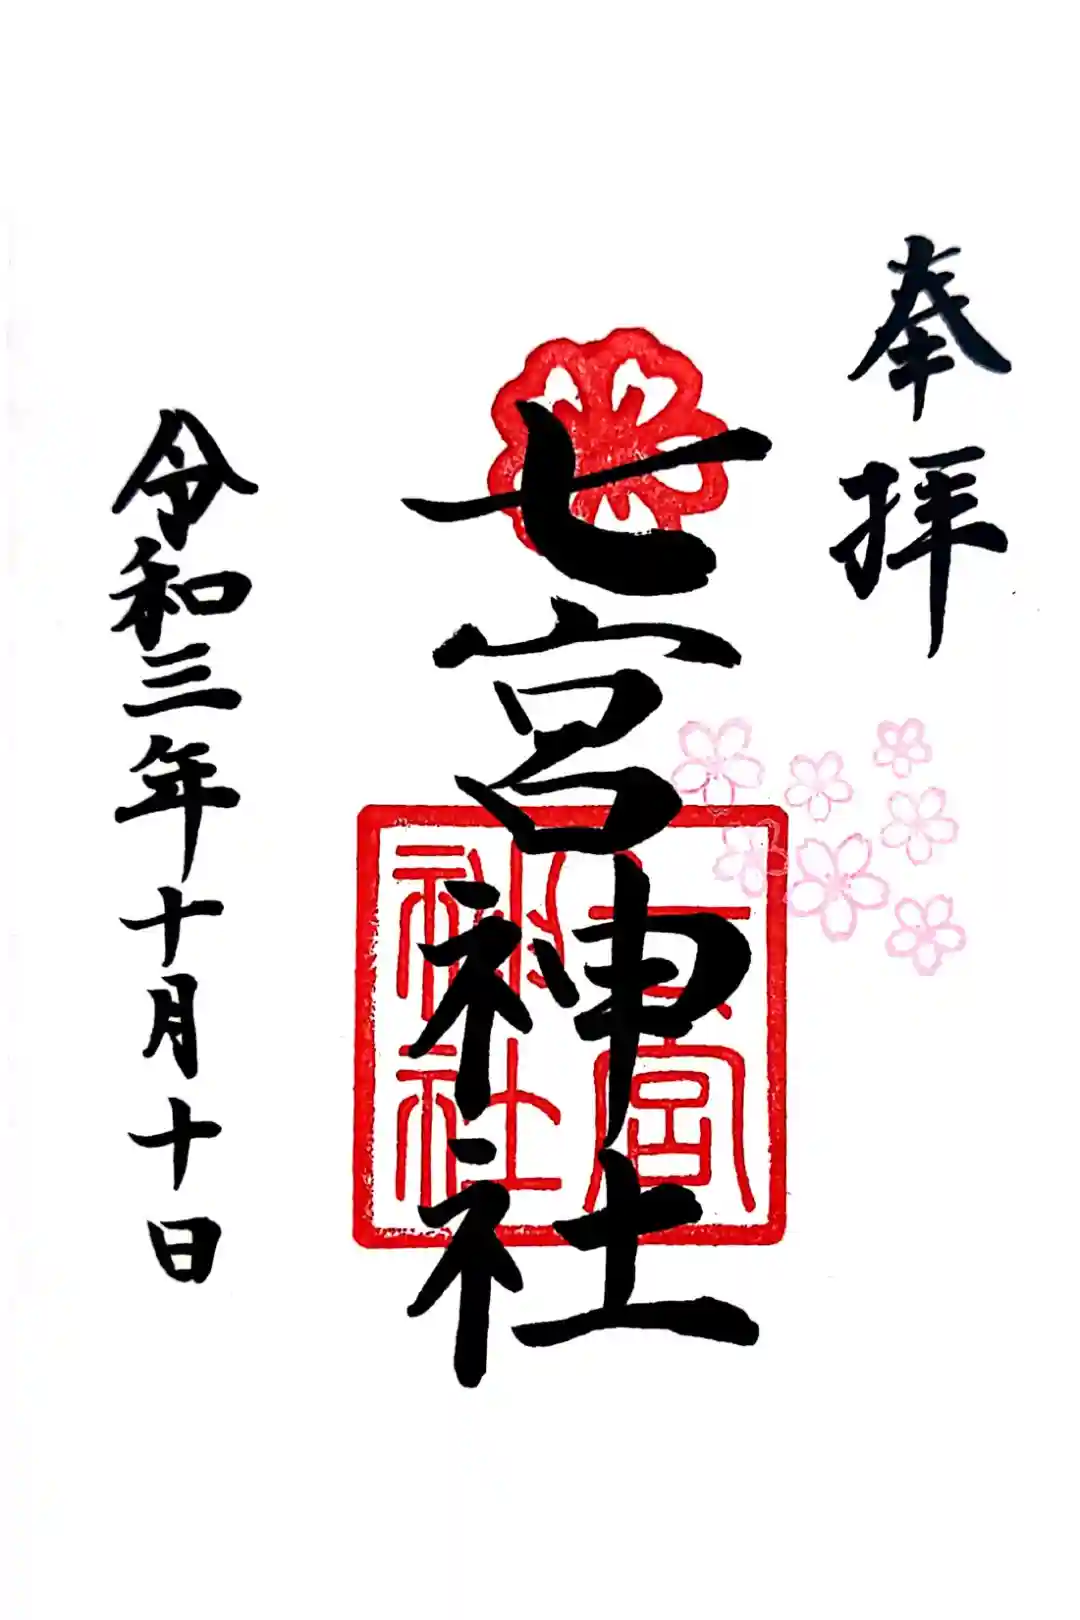 奉拝
七宮神社
七宮神社
令和三年十月十日